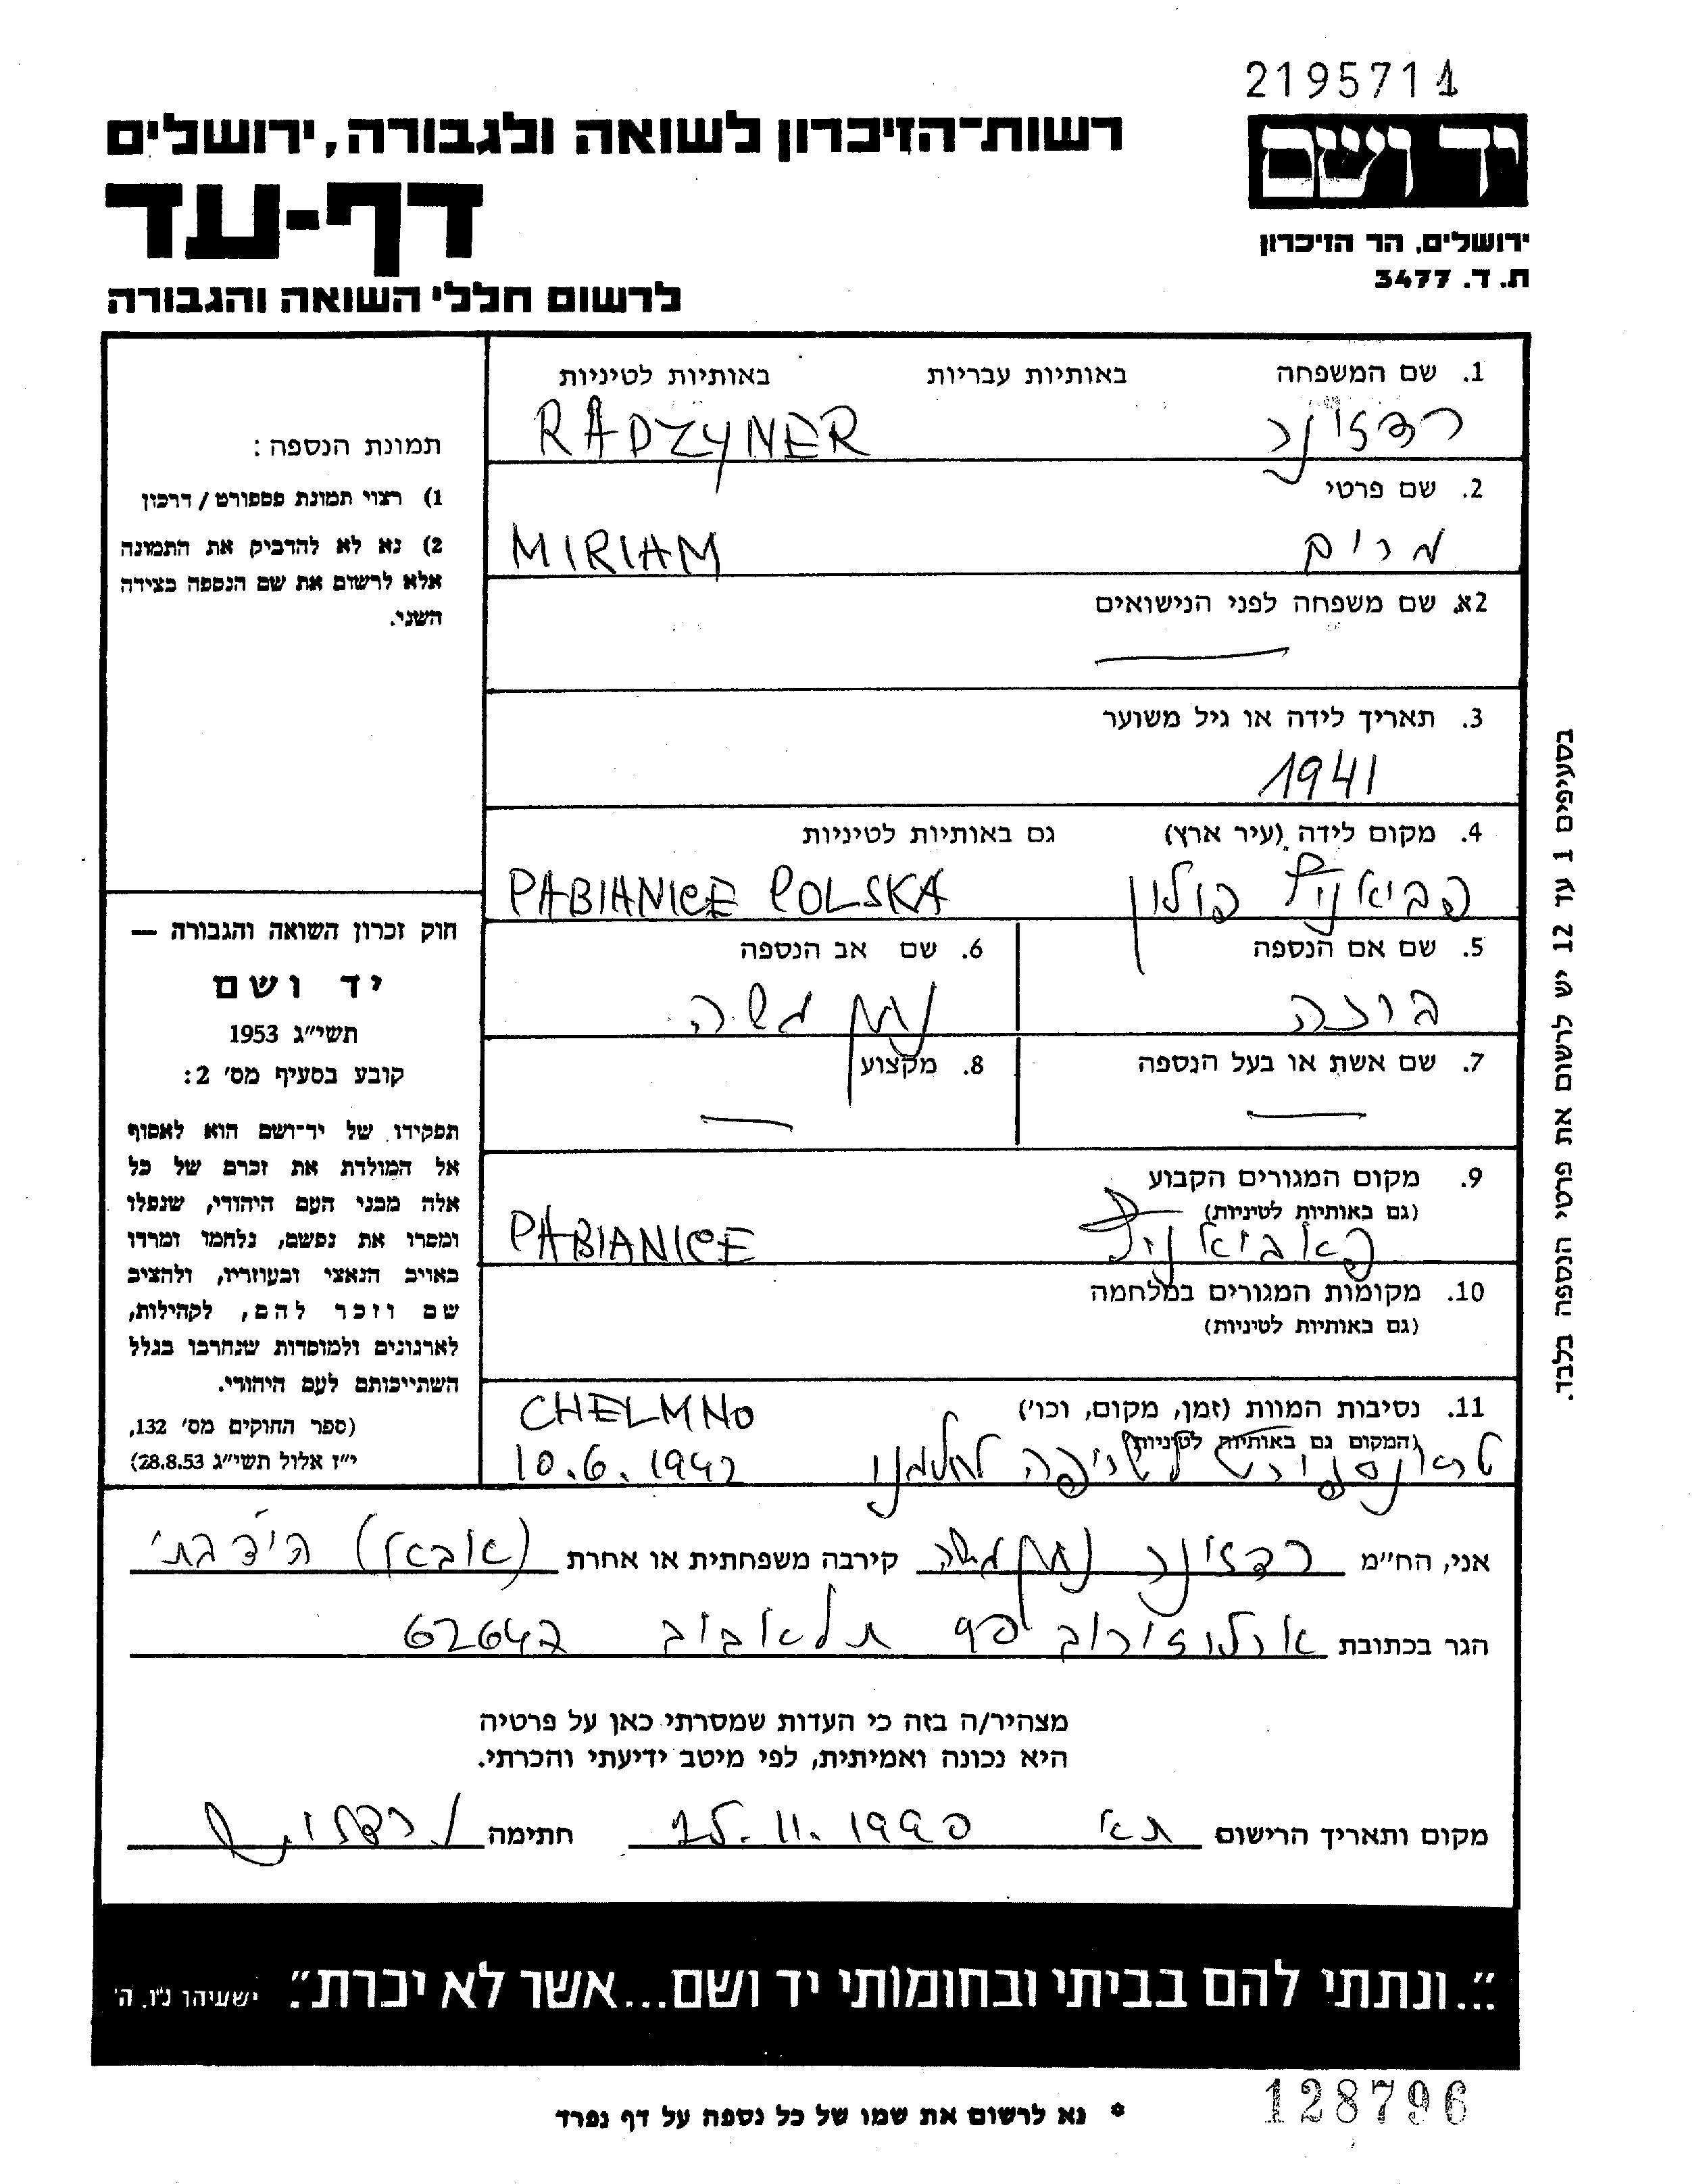 2195711
רשות־הזיכרון לשואה ולגבורה, ירושלים
יד ושם
דף-עד
ירושלים, הר הזיכרון
ת. ד. 3477
לרשום חללי השואה והגבורה
1. שם המשפחה באותיות עבריות באותיות לטיניות
רדזינר RADZYNER
2. שם פרטי
מרים MIRIAM
2א. שם משפחה לפני הנישואים
3. תאריך לידה או גיל משוער
1941
4. מקום לידה (עיר ארץ) גם באותיות לטיניות
פביאניץ פולין PABIANICE POLSKA
5. שם אם הנספה 6. שם אב הנספה
נתן משה
7. שם אשת או בעל הנספה 8. מקצוע
9. מקום המגורים הקבוע
(גם באותיות לטיניות)
פאביאניץ PABIANICE
10. מקומות המגורים במלחמה
(גם באותיות לטיניות)
11. נסיבות המוות (זמן, מקום, וכו') CHELMNO
(המקום גם באותיות לטיניות)
טראנספורט לשריפה לחלמנו 10.6.1942
תמונת הנספה:
1) רצוי תמונת פספורט / דרכון
2) נא לא להדביק את התמונה
אלא לרשום את שם הנספה בצידה
השני.
חוק זכרון השואה והגבורה —
יד ושם
תשי״ג 1953
קובע בסעיף מס׳ 2:
תפקידו של יד־ושם הוא לאסוף
אל המולדת את זכרם של כל
אלה מבני העם היהודי, שנפלו
ומסרו את נפשם, נלחמו ומרדו
באויב הנאצי ובעוזריו, ולהציב
שם וזכר להם, לקהילות,
לארגונים ולמוסדות שנחרבו בגלל
השתייכותם לעם היהודי.
(ספר החוקים מס׳ 132,
י״ז אלול תשי״ג 28.8.53)
בסעיפים 1 עד 12 יש לרשום את פרטי הנספה בלבד.
אני, הח״מ רדזינר נתן משה קירבה משפחתית או אחרת (אבא) בתי
הגר בכתובת ארלוזורוב תל אביב 62647
מצהיר/ה בזה כי העדות שמסרתי כאן על פרטיה
היא נכונה ואמיתית, לפי מיטב ידיעתי והכרתי.
מקום ותאריך הרישום תא חתימה
"...ונתתי להם בביתי ובחומותי יד ושם...אשר לא יכרת". ישעיהו נ״ו, ה׳
* נא לרשום את שמו של כל נספה על דף נפרד
128796